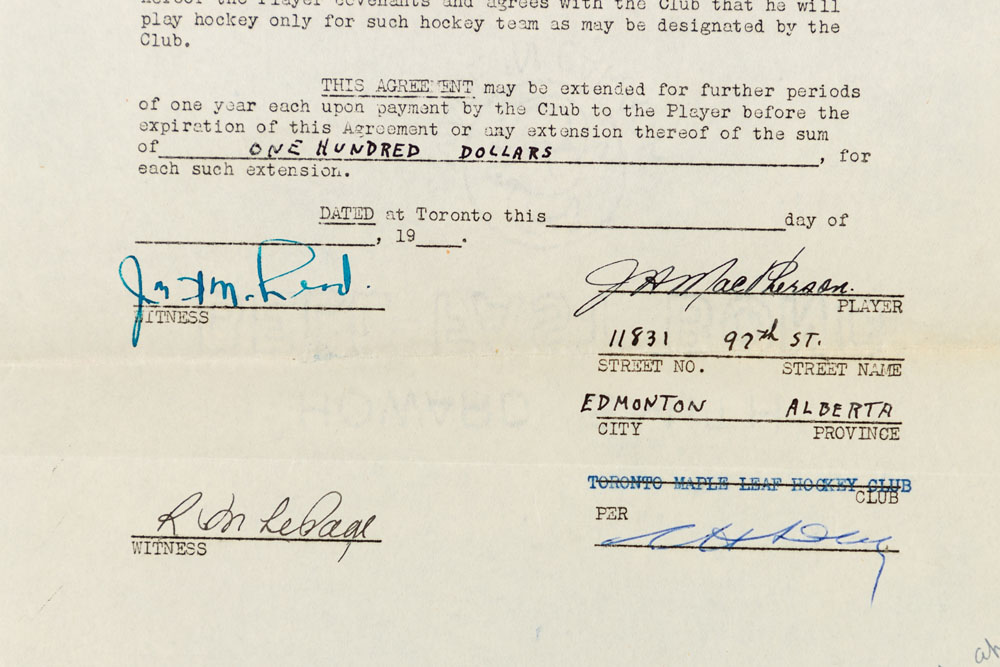 hereof the Player covenants and agrees with the Club that he will
play hockey only for such hockey team as may be designated by the
Club.
THIS AGREEMENT may be extended for further periods
of one year each upon payment by the Club to the Player before the
expiration of this Agreement or any extension thereof of the sum
of ONE HUNDRED DOLLARS, for
each such extension.
DATED at Toronto this day of
, 19 .
WITNESS
J H MacPherson.
PLAYER
11831 97th ST.
STREET NO. STREET NAME
EDMONTON ALBERTA
CITY PROVINCE
TORONTO MAPLE LEAF HOCKEY CLUB
CLUB
PER
R LePage
WITNESS